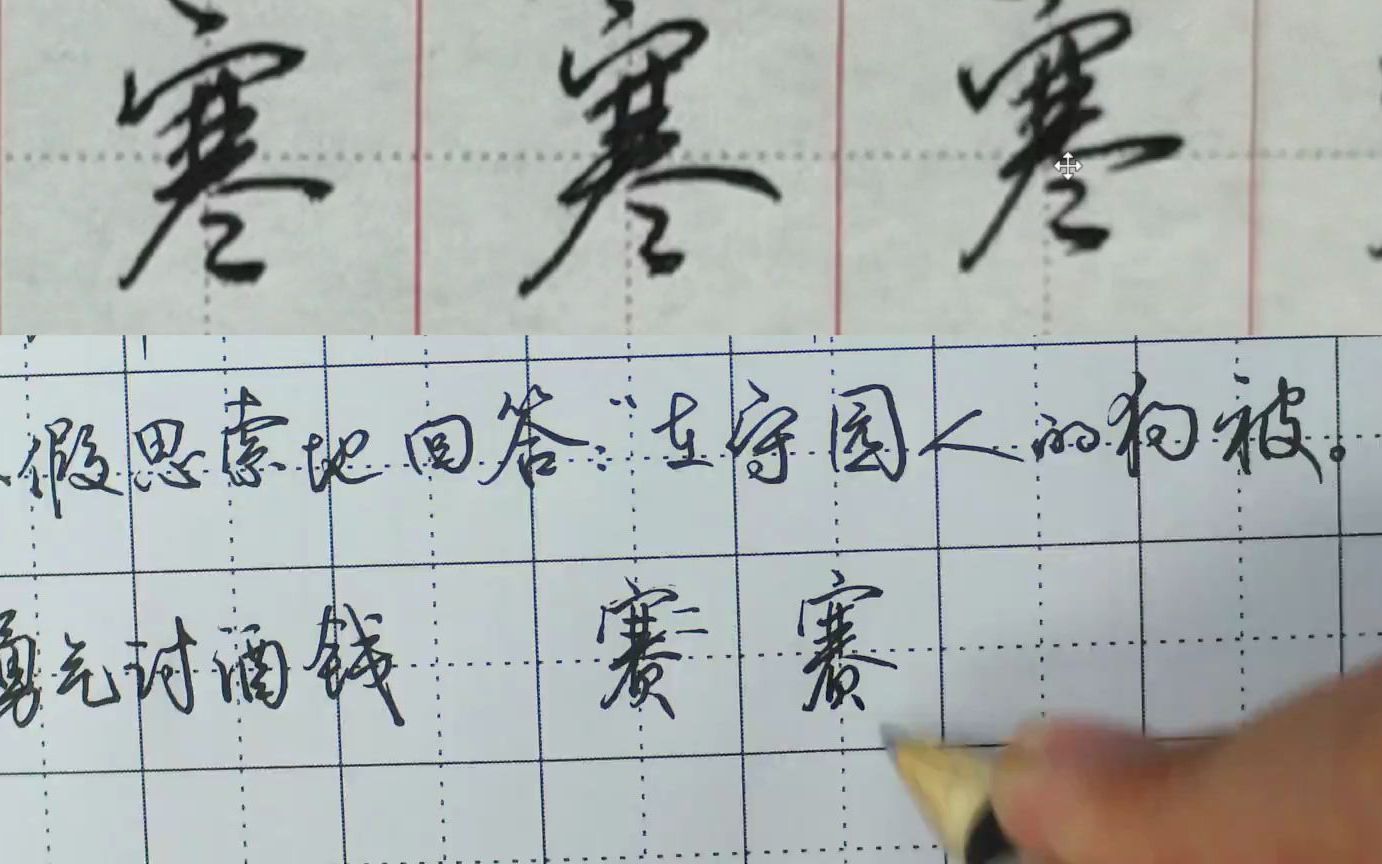 寒 寒 寒
假思索地回答：“在守园人的狗被。
勇气讨酒钱 赛 赛